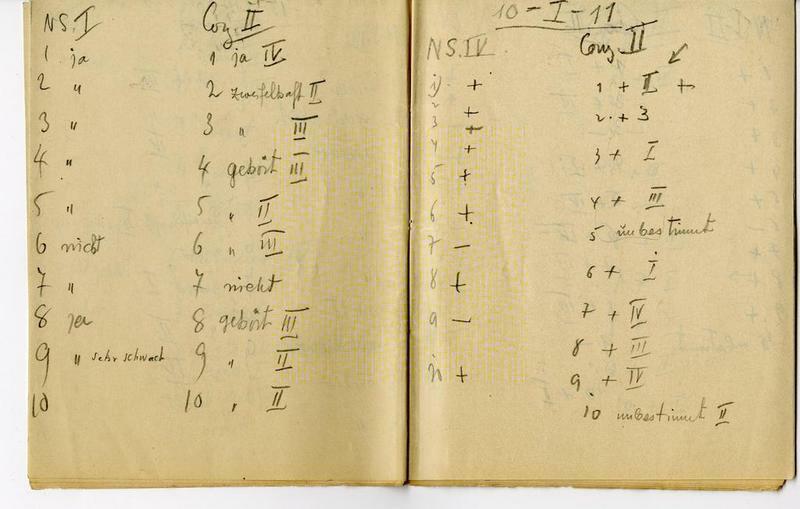 NS. I
1 ja
2 "
3 "
4 "
5 "
6 nicht
7 "
8 ja
9 " sehr schwach
10
Conz. II
1 ja IV
2 zweifelhaft II
3 " III
4 gehört III
5 " II
6 " III
7 nicht
8 gehört III
9 " II
10 " II
10-I-11
NS. IV
1) +
2 +
3 +
4 +
5 +
6 +
7 -
8 +
9 -
10 +
Conz II
1 + II +
2. + 3
3 + I
4 + III
5 unbestimmt
6 + I
7 + IV
8 + III
9 + IV
10 unbestimmt II